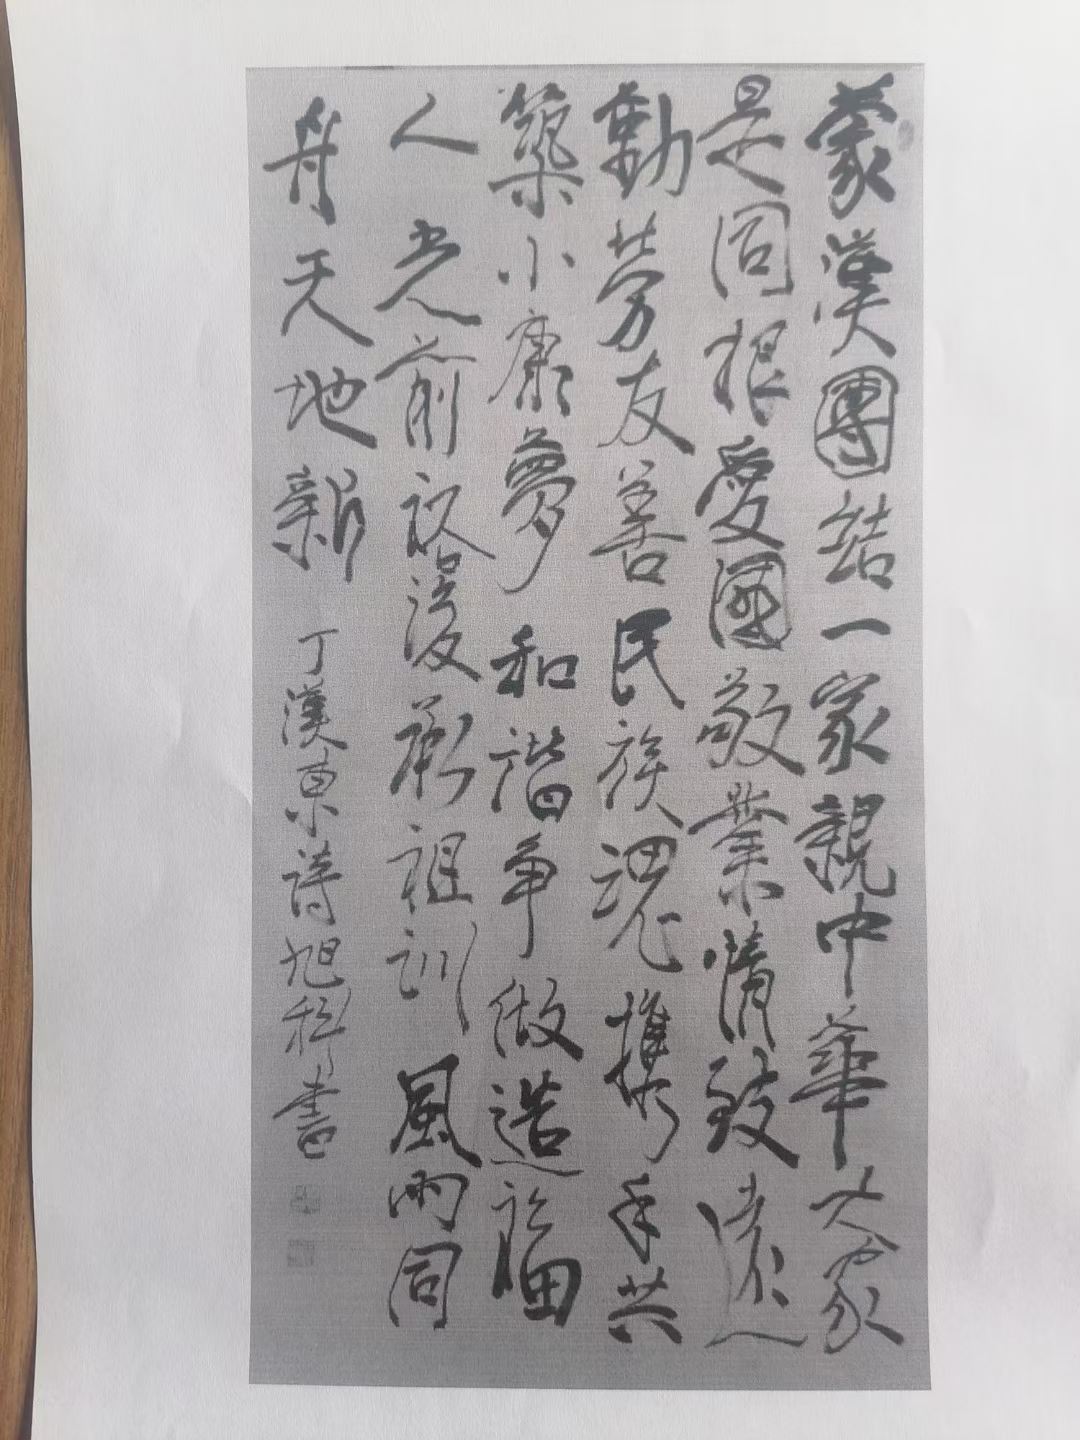 蒙漢團結一家親中華大家
是同根愛國敬業情致遠
勤劳友善民族魂攜手共
築小康夢和諧争做造福
人光前裕後承祖訓風雨同
舟天地新
丁漢東詩旭科書